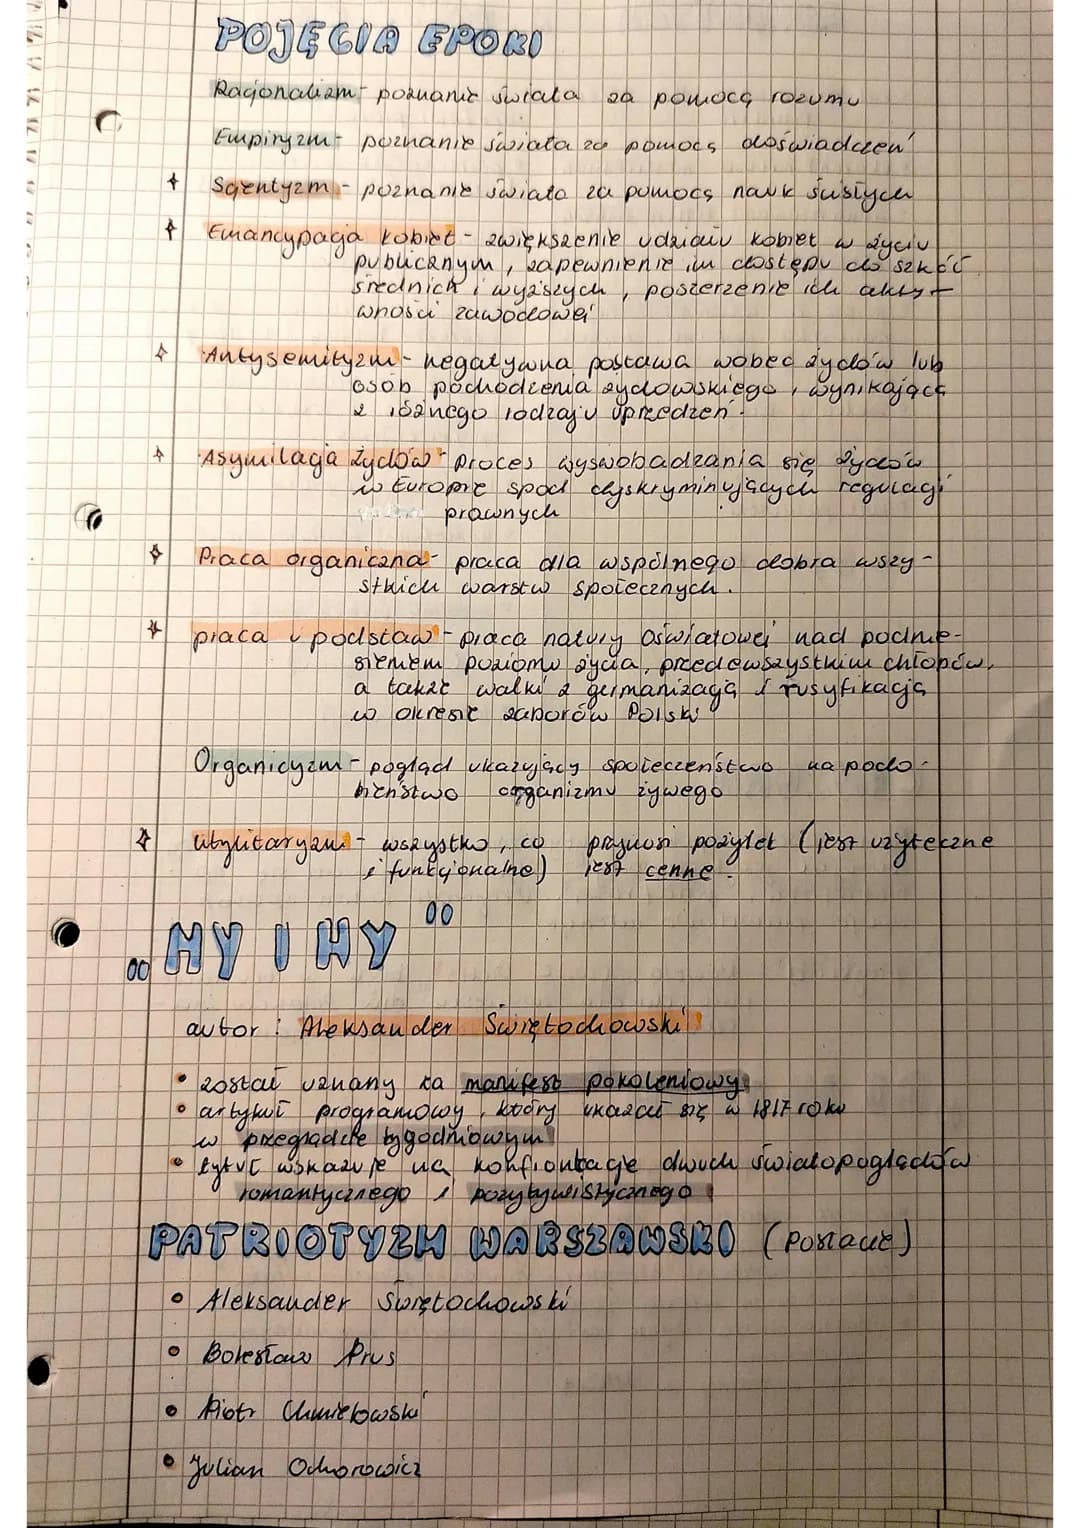 POJĘCIA EPOKI
Racjonalizm - poznanie świata za pomocą rozumu
Empiryzm - poznanie świata za pomocą doświadczeń
Scjentyzm - poznanie świata za pomocą nauk ścisłych
Emancypacja kobiet - zwiększenie udziału kobiet w życiu
publicznym, zapewnienie im dostępu do szkół
średnich i wyższych, poszerzenie ich akty-
wności zawodowej
Antysemityzm - negatywna postawa wobec żydów lub
osób pochodzenia żydowskiego, wynikająca
z różnego rodzaju uprzedzeń.
Asymilacja żydów - proces wyswobadzania się żydów
w Europie spod dyskryminujących regulacji
prawnych
Praca organiczna - praca dla wspólnego dobra wszy-
stkich warstw społecznych.
praca u podstaw - praca natury oświatowej nad podnie-
sieniem poziomu życia, przedewszystkim chłopów,
a także walki z germanizacją i rusyfikacją
w okresie zaborów Polski
Organicyzm - pogląd ukazujący społeczeństwo na podo-
bieństwo organizmu żywego
Utylitaryzm - wszystko, co przynosi pożytek (jest użyteczne
i funkcjonalne) jest cenne.
„MY I MY"
autor: Aleksander Świętochowski
• został uznany za manifest pokoleniowy
• artykuł programowy, który ukazał się w 1817 roku
w przeglądzie tygodniowym
• tytuł wskazuje na konfrontację dwuch światopoglądów
romantycznego i pozytywistycznego
PATRIOTYZM WARSZAWSKI (Postacie)
• Aleksander Świętochowski
• Bolesław Prus
• Piotr Chmielowski
• Julian Ochorowicz